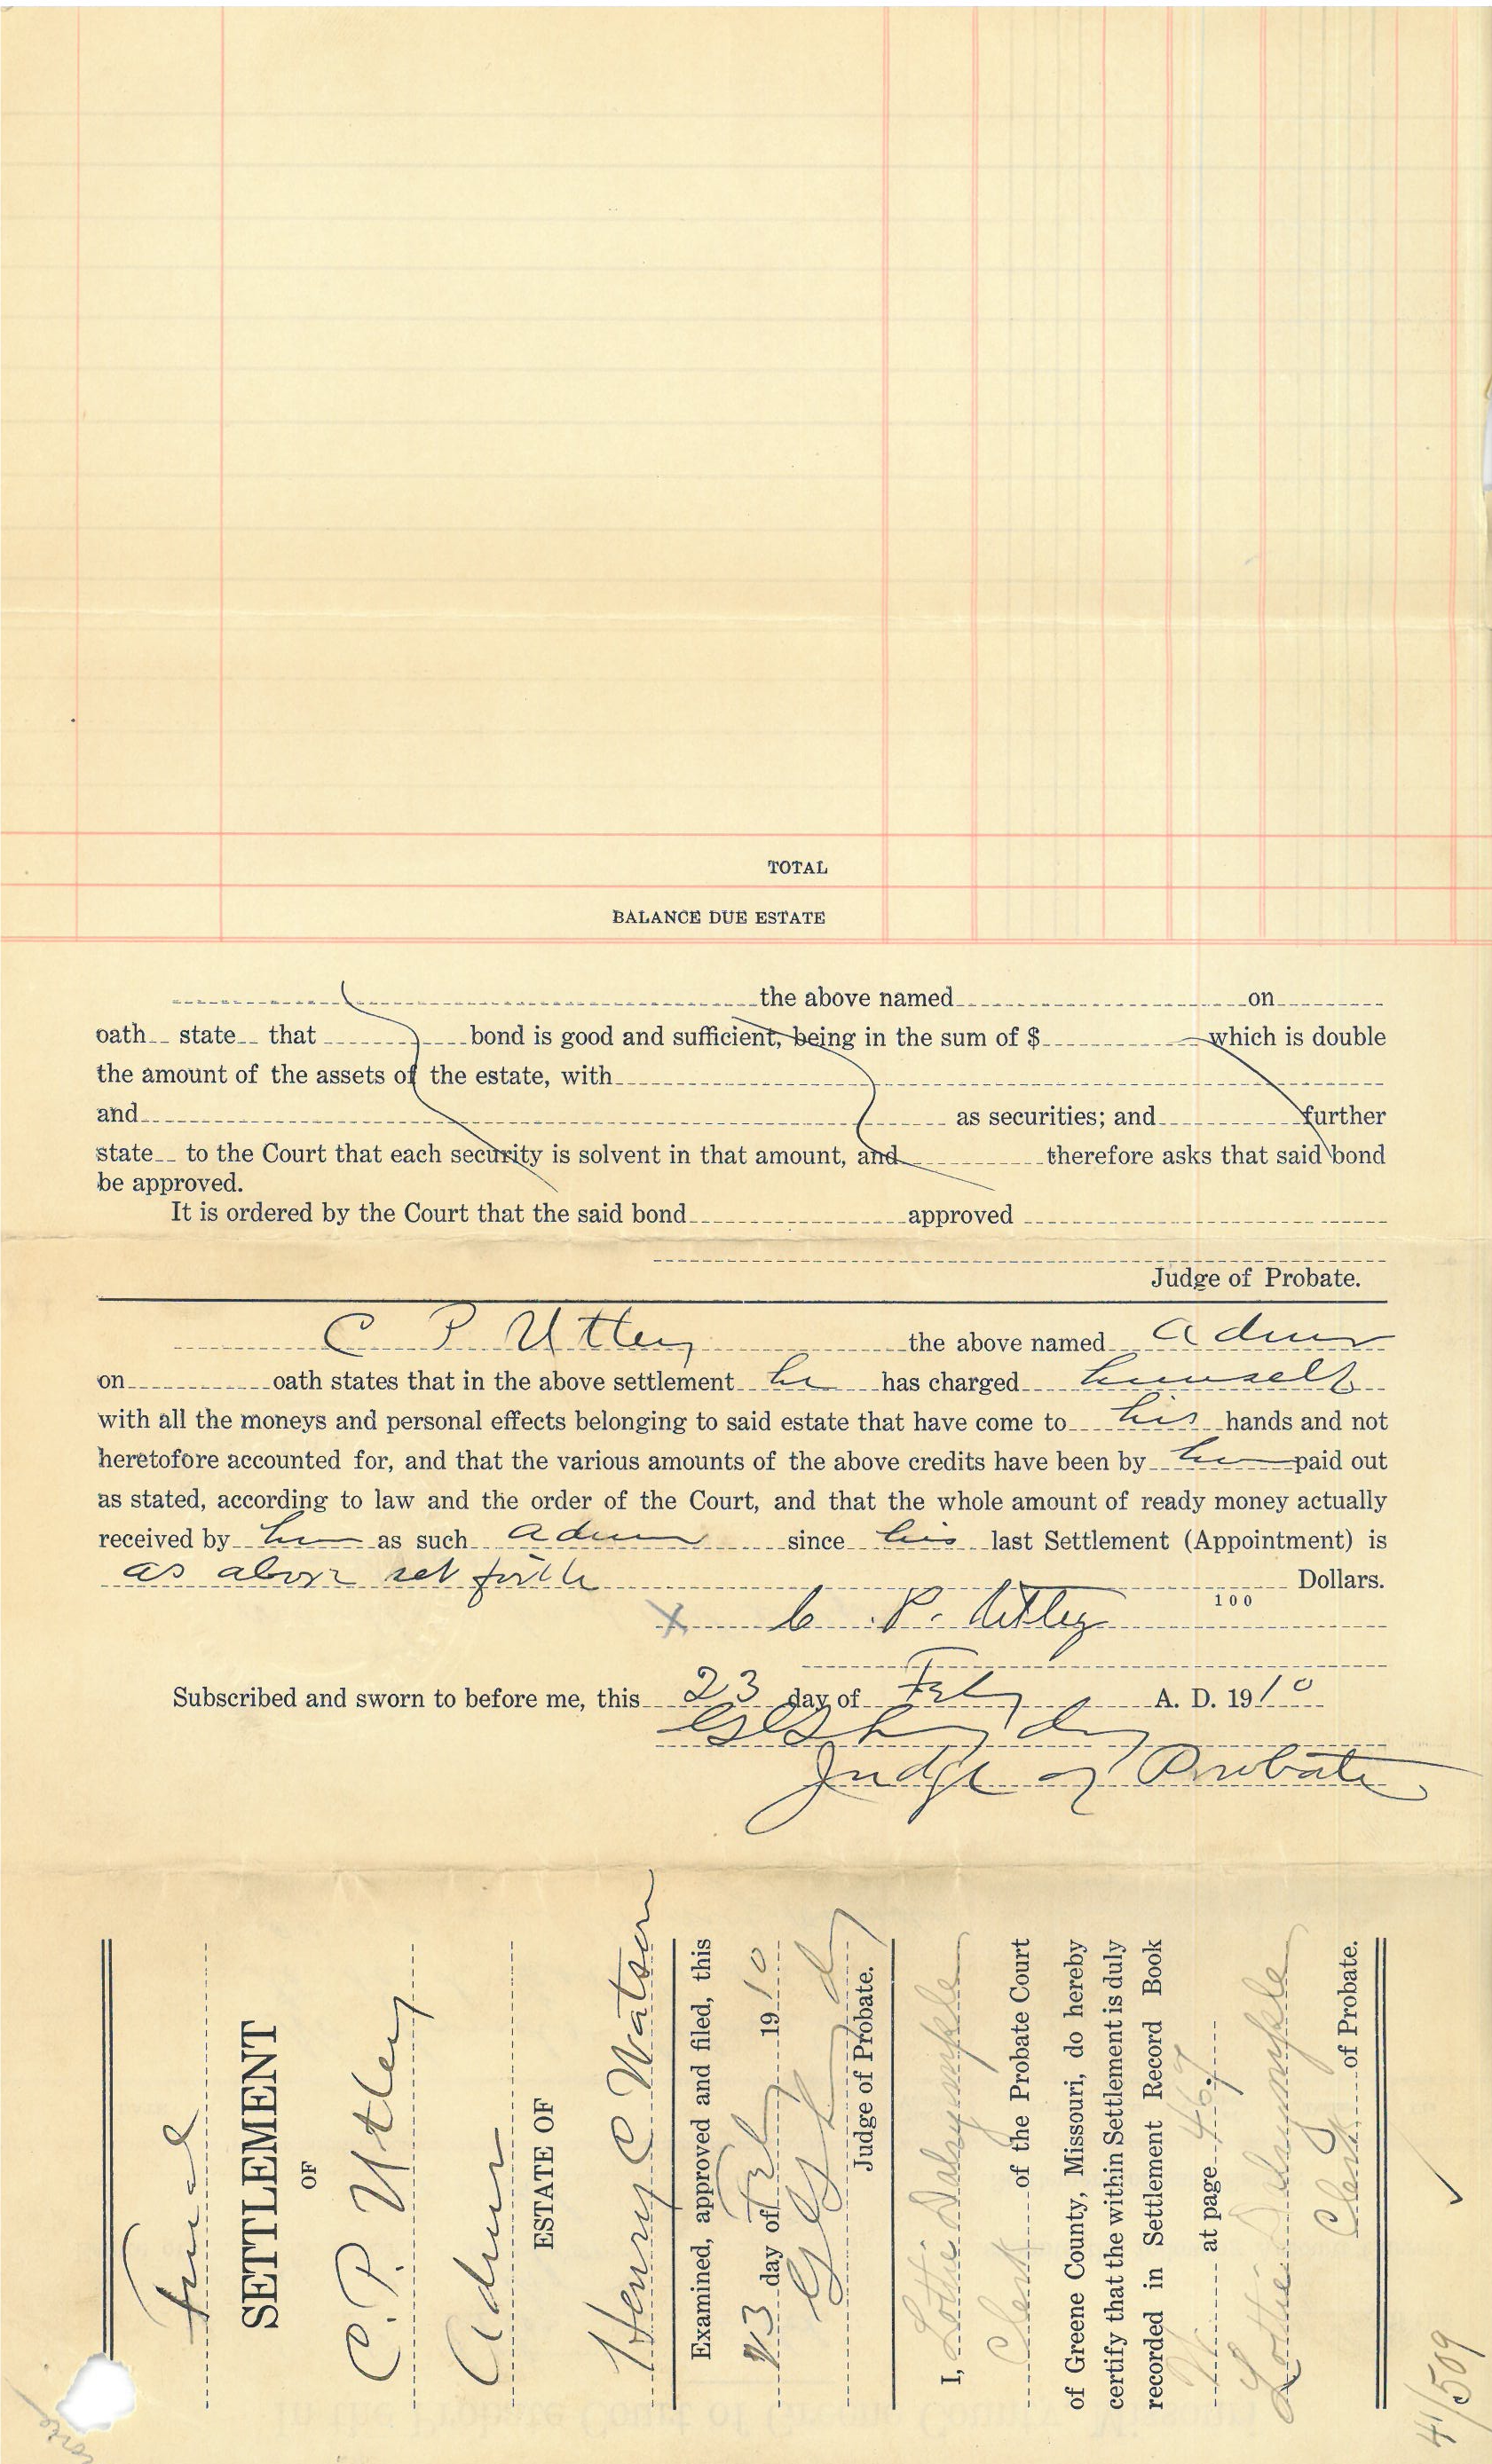 TOTAL
BALANCE DUE ESTATE
the above named on
oath state that bond is good and sufficient, being in the sum of $ which is double
the amount of the assets of the estate, with
and as securities; and further
state to the Court that each security is solvent in that amount, and therefore asks that said bond
be approved.
It is ordered by the Court that the said bond approved
Judge of Probate.
C P Utley the above named admr
on oath states that in the above settlement he has charged himself
with all the moneys and personal effects belonging to said estate that have come to his hands and not
heretofore accounted for, and that the various amounts of the above credits have been by him paid out
as stated, according to law and the order of the Court, and that the whole amount of ready money actually
received by him as such admr since his last Settlement (Appointment) is
as above set forth Dollars.
100
X C. P. Utley
Subscribed and sworn to before me, this 23 day of Feby A. D. 1910
Judge of Probate
Final
SETTLEMENT
OF
C. P. Utley
Admr
ESTATE OF
Henry C Watson
Examined, approved and filed, this
23 day of Feby 1910
Judge of Probate.
I, Lottie Dalrymple
Clerk of the Probate Court
of Greene County, Missouri, do hereby
certify that the within Settlement is duly
recorded in Settlement Record Book
at page 467
Lottie Dalrymple
Clerk of Probate.
41/509